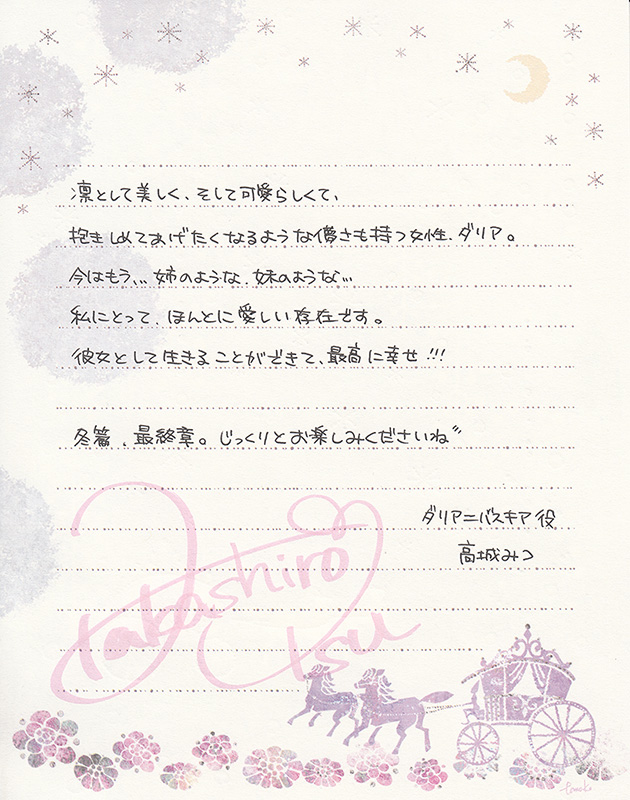 凛として美しく、そして可愛らしくて、
抱きしめてあげたくなるような儚さも持つ女性、ダリア。
今はもう、、、姉のような、妹のような…
私にとって、ほんとに愛しい存在です。
彼女として生きることができて、最高に幸せ!!!
冬篇、最終章。じっくりとお楽しみくださいね
ダリア=バスキア役
高城みつ
Takashiro
itsu